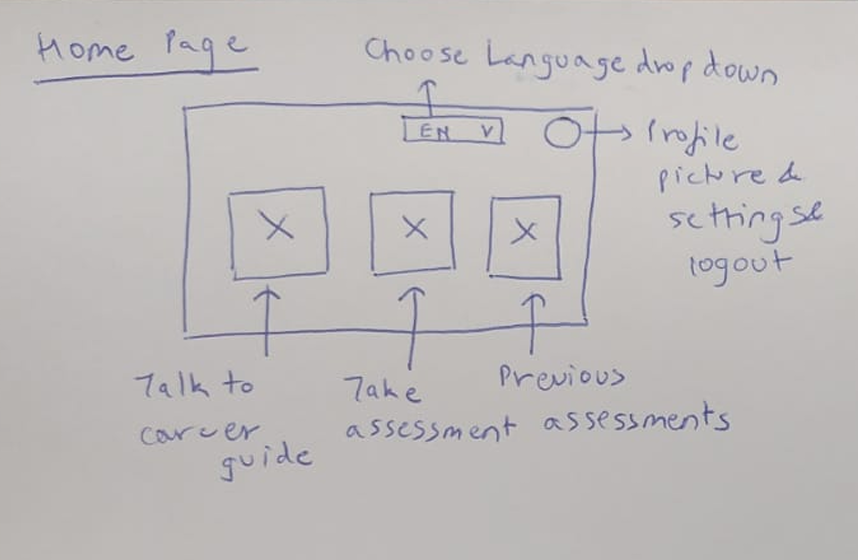 Home Page
Choose Language dropdown
EN V
Profile
picture &
settings &
logout
X X X
Talk to
career
guide
Take
assessment
Previous
assessments